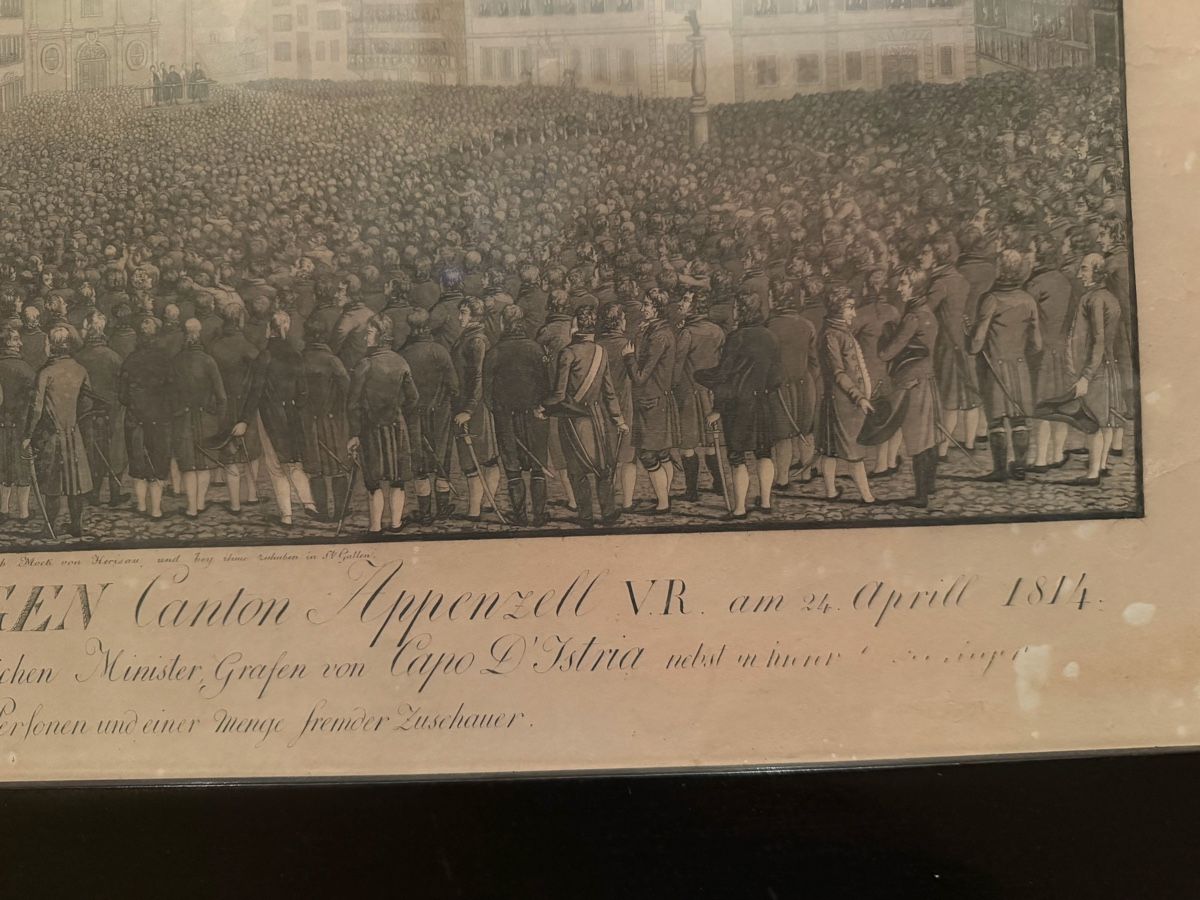 Mock von Herisau, und bey ihme zuhaben in St Gallen.
GEN Canton Appenzell V.R. am 24. Aprill 1814.
ichen Minister, Grafen von Capo D'Istria nebst
Personen und einer Menge fremder Zuschauer.